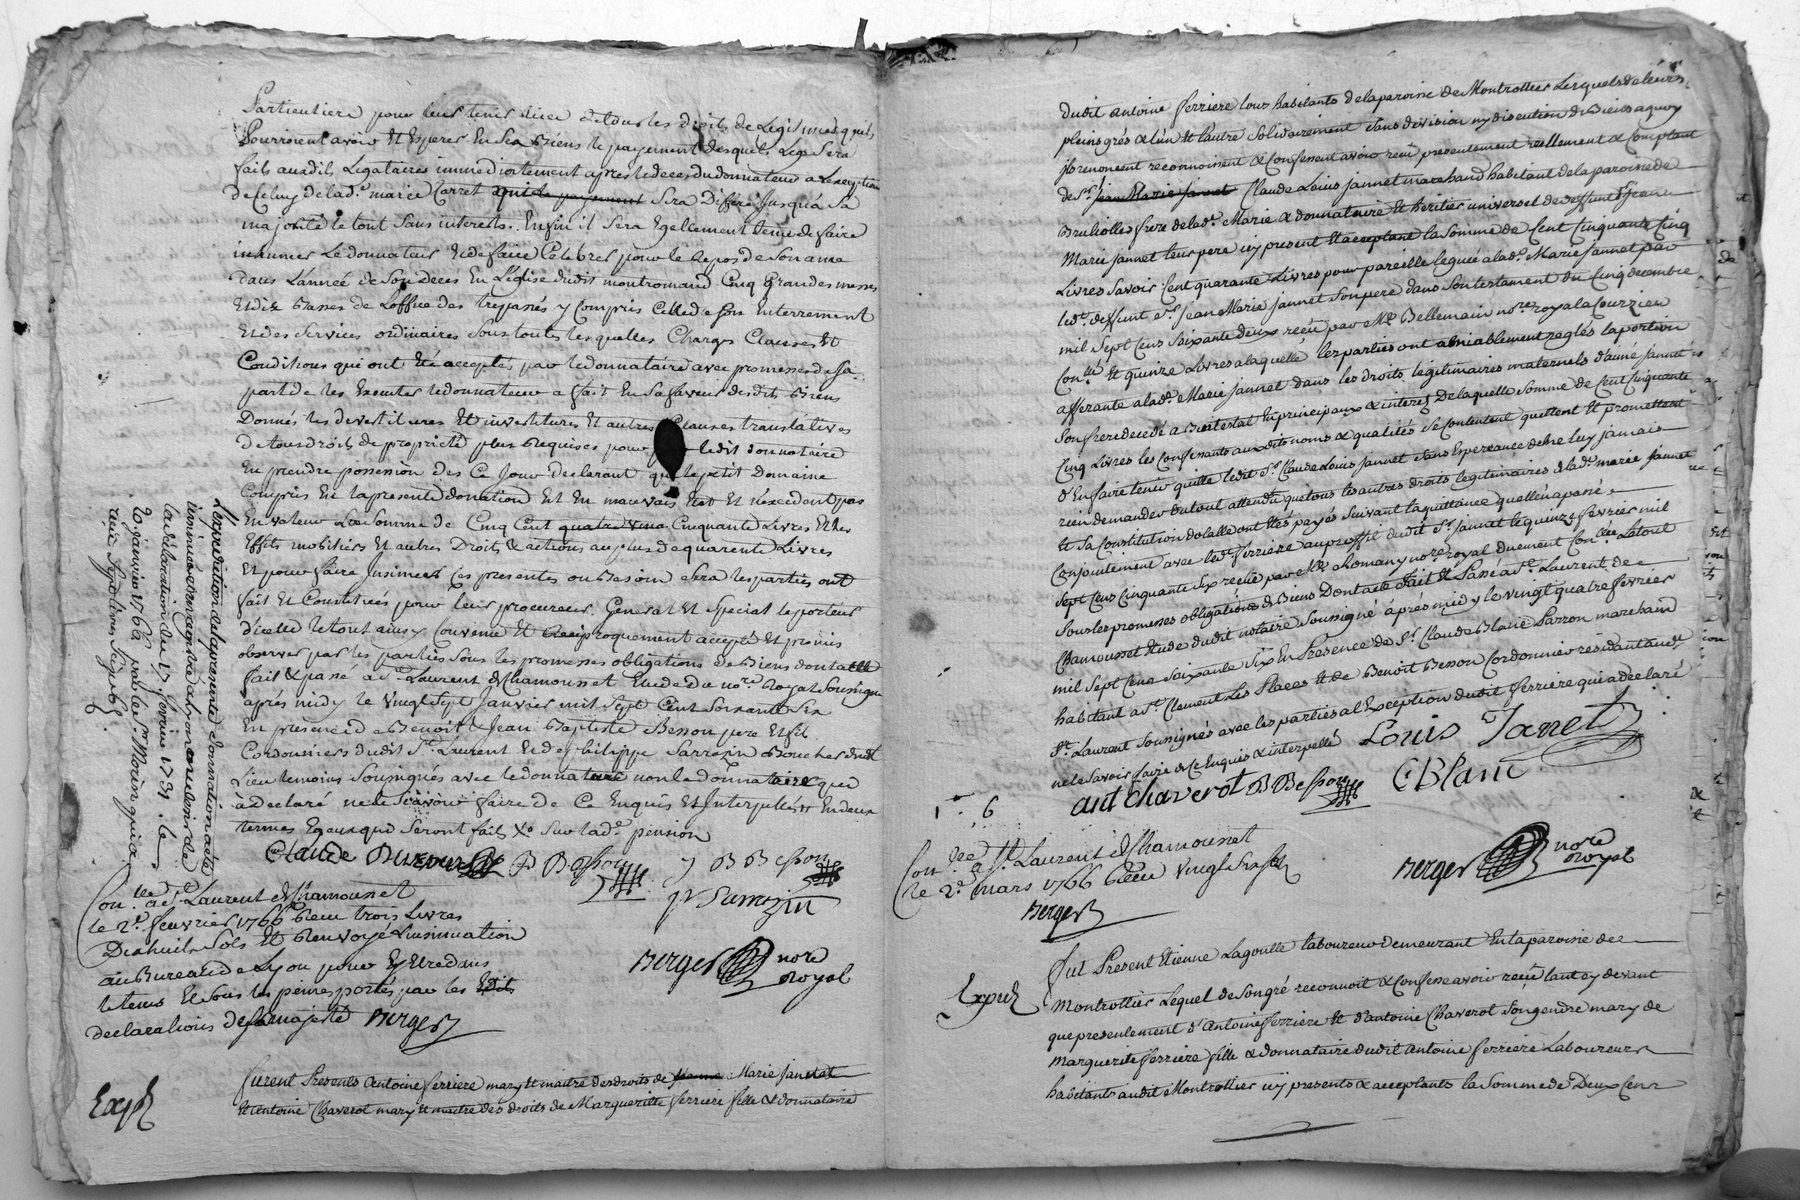 Particuliere pour leur tenir lieu de tous les droits de Legitimes quils
Pourroient avoir Et Esperer En ses Biens le payement desquels Legs Sera
fait auxdits Legataires immediatement apres le deces du donnateur a Lexception
de Celuy de lad.e marie Carret qui le payement Sera Differé Jusqua Sa
majorité le tout Sans interests. Enfin il Sera Egallement tenu de faire
inhumer Le donnateur Et de faire Celebrer pour le Repos de Son ame
dans Lannée de Son Deces En L'église dudit montromand Cinq Grandes messes
Et dix Basses de Loffice des trepassés y Compris Celle de son Enterrement
Et des Services ordinaires Sous toutes lesquelles Charges Clauses Et
Conditions qui ont Eté acceptés par le donnataire avec promesses de sa
part de les Executer le donnateur a fait En Sa faveur desdits Biens
Donnés les devestitures Et investitures Et autres Clauses translatives
de tous droits de propriété plus Requises pour ledit donnataire
En prendre possession des Ce Jour declarant que le petit Domaine
Compris En la presente donnation Est En mauvais Etat Et N'excedent pas
En valeur La Somme de Cinq Cent quatre vingt Cinquante Livres Et les
Effets mobiliers Et autres Droits & actions au plus de quarente Livres
Et pour faire Insinuer Ces presentes ou Besoin Sera les parties ont
fait Et Constitués pour leur procureur General Et Special le porteur
dicelle le tout ainsy Convenu Et Reciproquement accepté Et promis
observer par les parties Sous les promesses obligations de Biens dont acte
fait & passé a St. Laurent de Chamousset Etude du no.re Royal Soussigné
après midy le vingt Sept Janvier mil Sept Cent Soixante Six
En presence de Benoit & Jean Baptiste Besson pere Et fils
Cordonniers dudit St. Laurent Et de philippe Sarrazin Boucher dudit
Lieu temoins Soussignés avec le donnataire non le donnateur qui
a declaré ne le Scavoir faire de Ce Enquis Et Interpellé Et En deux
termes Egeaux qui Seront faits Xo Sur lad.e pension
B Besson
J B Besson
Con.lée a St. Laurent de Chamousset
le 2.e fevrier 1766 Reçu trois Livres
Dix huit Sols Et Renvoyé Linsinuation
au Bureau de Lyon pour y Etre dans
le tems Et Sous les peines portés par les Edits
declarations de Sa majesté Berger
Berger no.re Royal
L'expedition de la presente donnation a été
Exp.é
furent Presents Antoine ferriere mary Et maitre des droits de Jeanne Marie Jannet
Et Antoine Chaverot mary Et maitre des droits de Marguerite ferriere fille & donnataire
dudit Antoine ferriere tous habitants de la paroisse de Montrottier Lesquels de leurs
pleins grés & l'un Et l'autre Solidairement Sans division ny discution de Biens a quoy
ils renoncent reconnoissent & Confessent avoir reçu presentement reellement & Comptant
de Sr. Jean Marie Jannet Claude Louis Jannet marchand habitant de la paroisse de
Brullioles frere de lad.e Marie & donnataire Et heritier universel de deffunt Sr Jean
Marie Jannet leur pere icy present Et acceptant la Somme de Cent Cinquante Cinq
Livres Savoir Cent quarante Livres pour pareille leguée a lad.e Marie Jannet par
led.t deffunt Sr. Jean Marie Jannet Son pere dans Son testament du Cinq decembre
mil Sept Cens Soixante deux reçu par Me. Bellemain no.re royal a Courzieu
Con.llé Et quinze Livres a laquelle les parties ont amiablement reglés la portion
afferante a lad.e Marie Jannet dans les droits legitimaires maternels d'aimé Jannet
Son frere decedé a B intestat En principaux & interest De laquelle Somme de Cent Cinquante
Cinq Livres les Confessants auxdits noms & qualités Se Contentent quittent Et promettent
d'En faire tenir quitte ledit Sr. Claude Louis Jannet Sans Esperance de ne luy jamais
rien demander du tout attendu que tous les autres droits legitimaires de lad.e marie Jannet
Et Sa Constitution dotalle ont Etés payés Suivant la quittance quelle n'a passé
Conjointement avec led.t ferriere au proffit dudit Sr. Jannet le quinze fevrier mil
Sept Cens Cinquante Six reçue par Me. Chomany no.re royal duement Con.lée Le tout
Sous les promesses obligations de Biens Dont acte Fait & Passé a St. Laurent de
Chamousset Etude dudit notaire Soussigné après midy le vingt quatre fevrier
mil Sept Cens Soixante Six En Presence de Sr. Claude Blanc Garron marchand
habitant a St. Clement Les Places Et de Benoit Besson Cordonnier residant aud.t
St. Laurent Soussignés avec les parties a l'Exception dudit ferriere qui a declaré
ne le Savoir faire de Ce Enquis & interpellé Louis Jannet
ant chaverot B Besson C Blanc
Con.lée a St. Laurent de Chamousset
le 2.e mars 1766 Reçu vingt Six s
Berger
Berger no.re Royal
Exp.é
Fut Present Etienne Lagoutte Laboureur demeurant En la paroisse de
Montrottier Lequel de Son gré reconnoit & Confesse avoir reçu tant cy devant
que presentement d'Antoine ferriere Et d'antoine Chaverot Son gendre mary de
Marguerite ferriere fille & donnataire dudit Antoine ferriere Laboureurs
habitants audit Montrottier icy presents & acceptants la Somme de Deux Cens